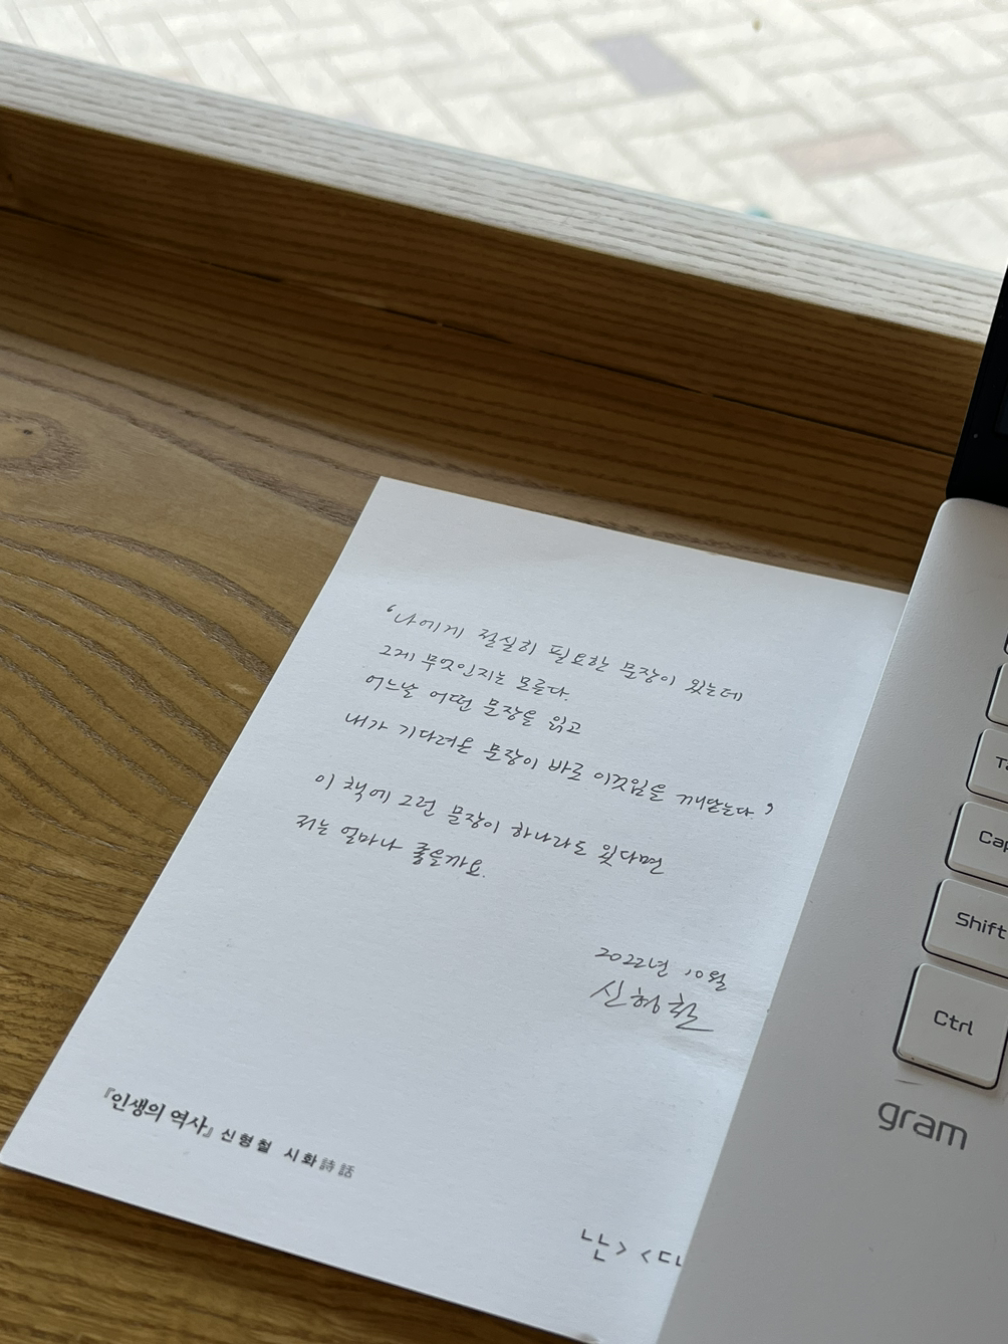 ‘나에게 절실히 필요한 문장이 있는데
그게 무엇인지는 모른다.
어느날 어떤 문장을 읽고
내가 기다려온 문장이 바로 이것임을 깨닫는다.’
이 책에 그런 문장이 하나라도 있다면
저는 얼마나 좋을까요.
2022년 10월
신형철
『인생의 역사』 신형철 시화詩話
난> <다
Cap
Shift
Ctrl
gram